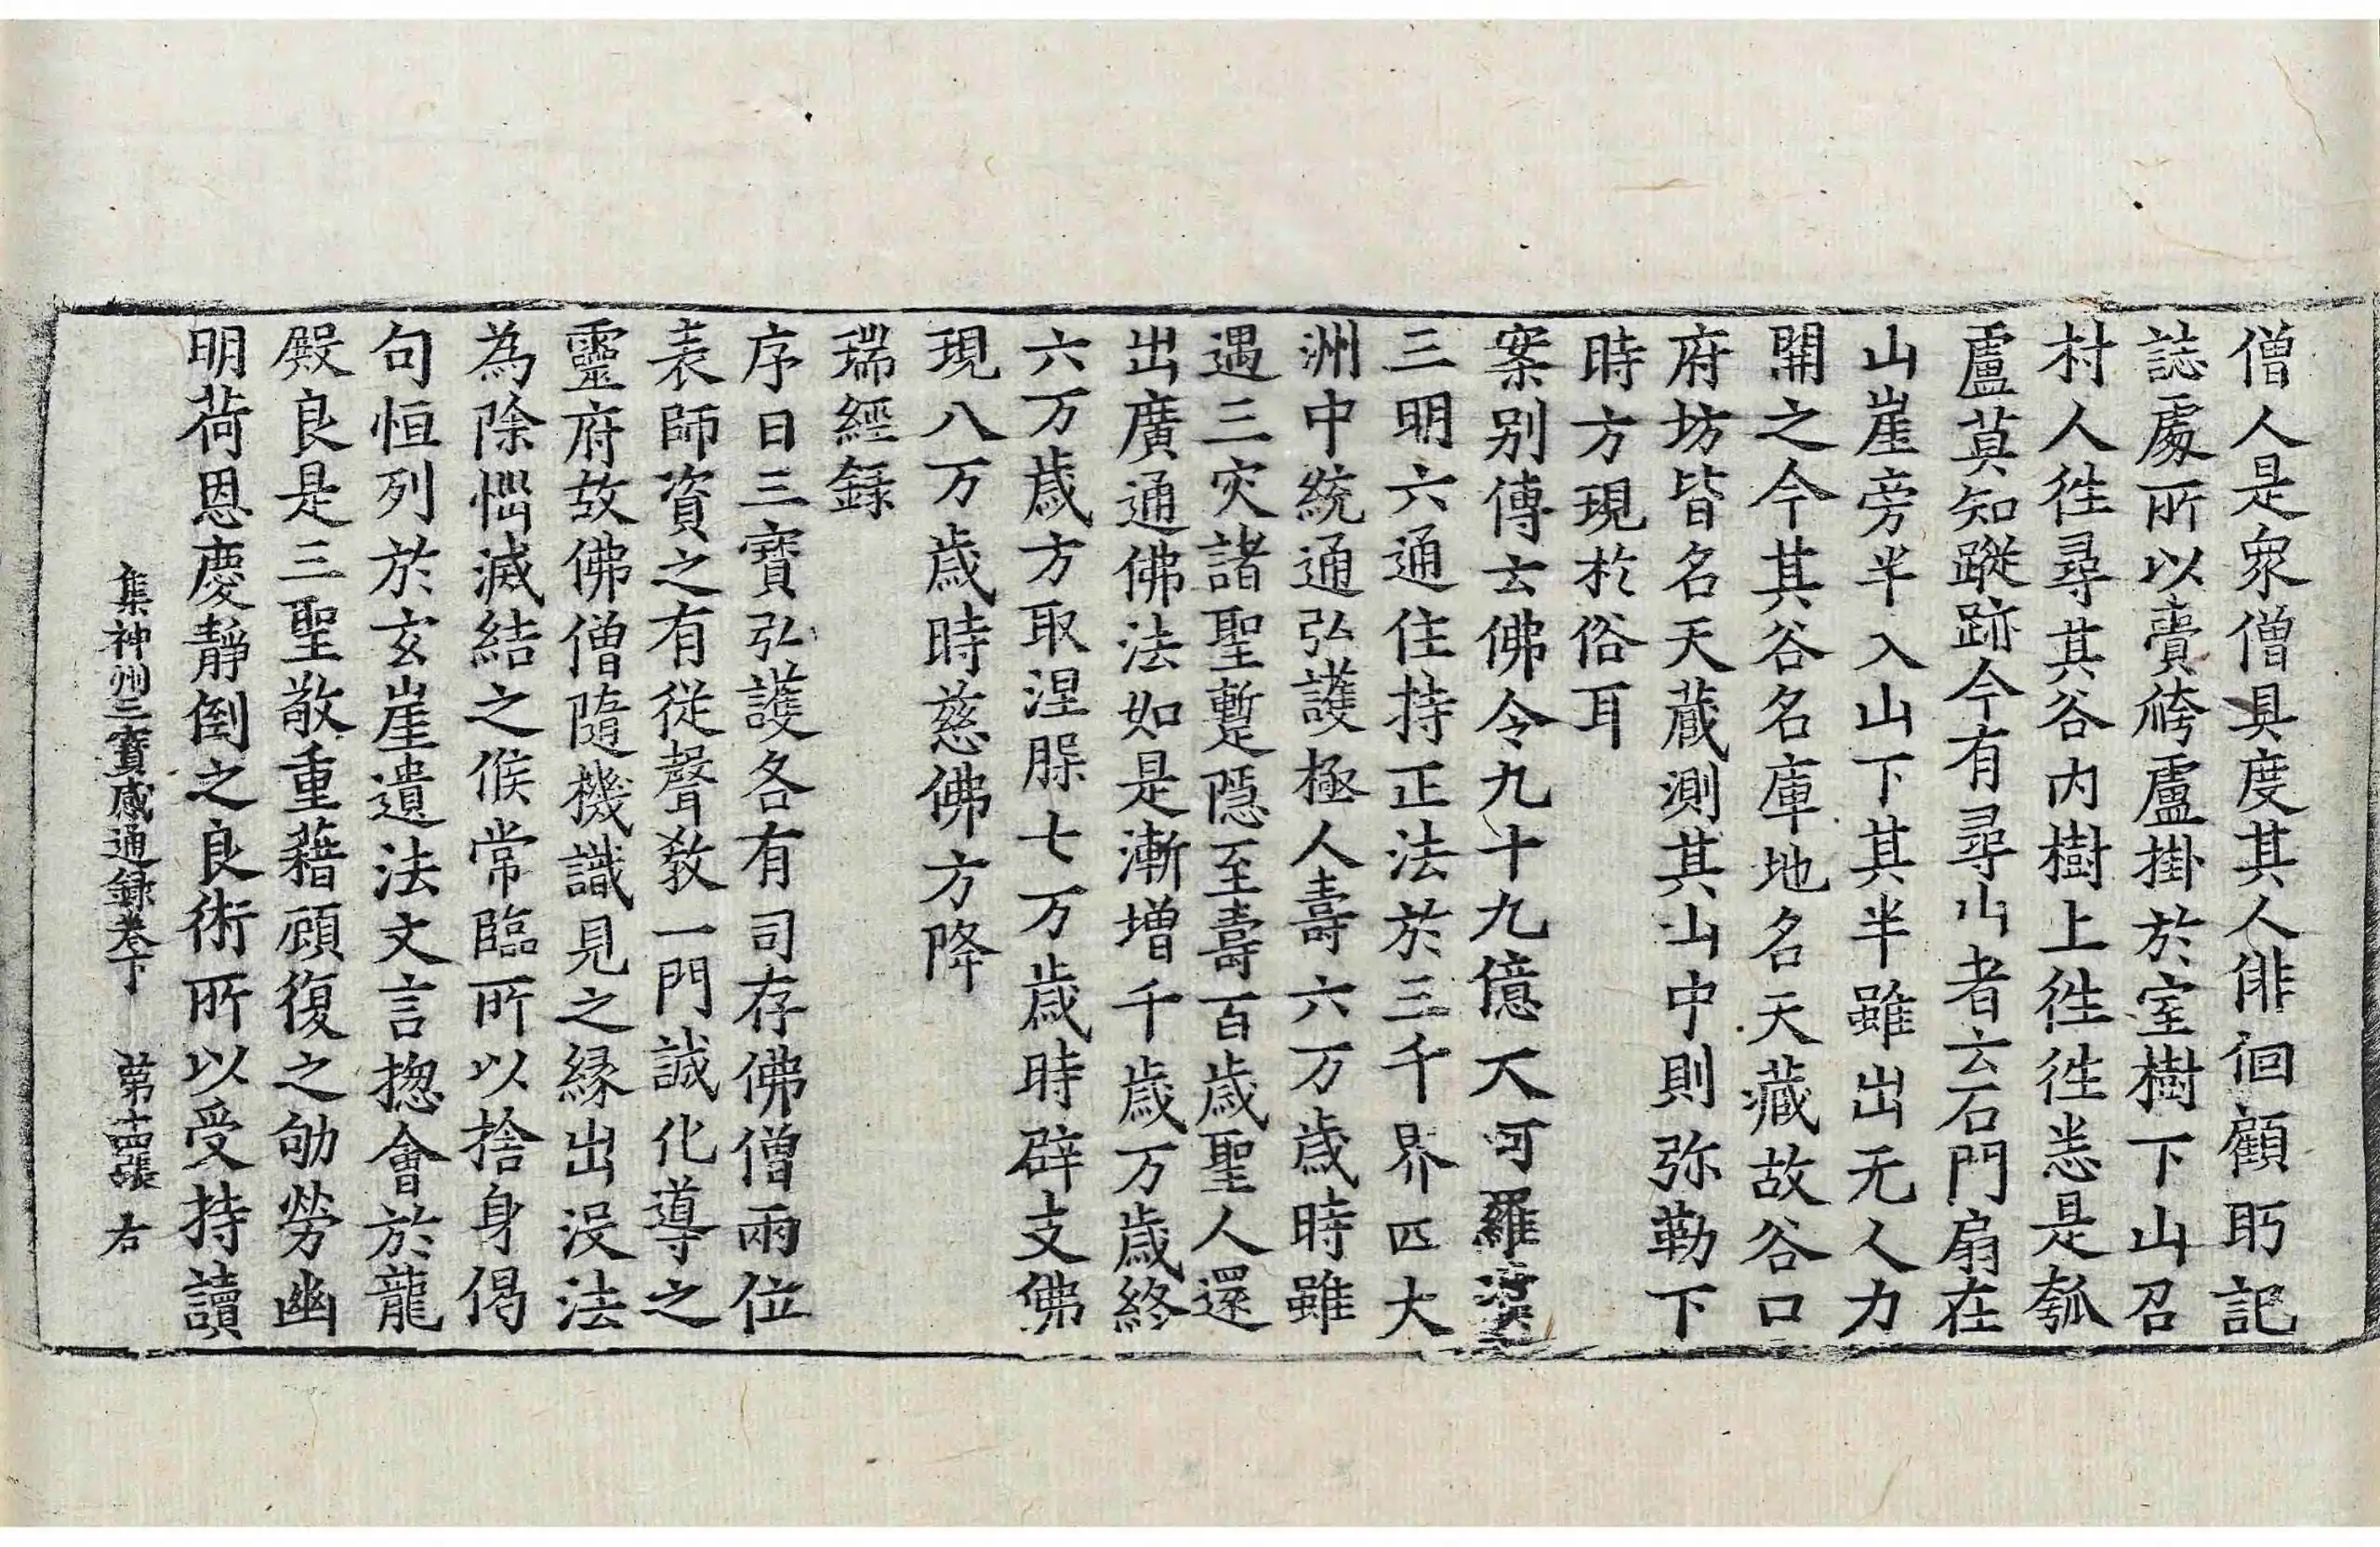 僧人是衆僧具度其人俳徊顧眄記
誌處所以賷袴盧掛於室樹下山召
村人徃尋其谷内樹上徃徃恙是瓠
盧莫知蹤跡今有尋山者云石門扇在
山崖旁半入山下其半雖出无人力
開之今其谷名庫地名天藏故谷口
府坊皆名天藏測其山中則弥勒下
時方現於俗耳
案别傳云佛令九十九億大阿羅漢
三明六通住持正法於三千界四大
洲中統通弘護極人壽六万歲時雖
遇三灾諸聖蹔隠至壽百歲聖人還
出廣通佛法如是漸增千歲万歲終
六万歲方取涅槃七万歲時辟支佛
現八万歲時慈佛方降
瑞經録
序曰三寶弘護各有司存佛僧兩位
表師資之有從聲教一門誠化導之
靈府故佛僧隨機識見之縁出没法
為除惱滅結之候常臨所以捨身偈
句恒列於玄崖遺法文言揔會於龍
殿良是三聖敬重藉顧復之劬勞幽
明荷恩慶靜倒之良術所以受持讀
集神州三寶感通録卷下　第十四張　右